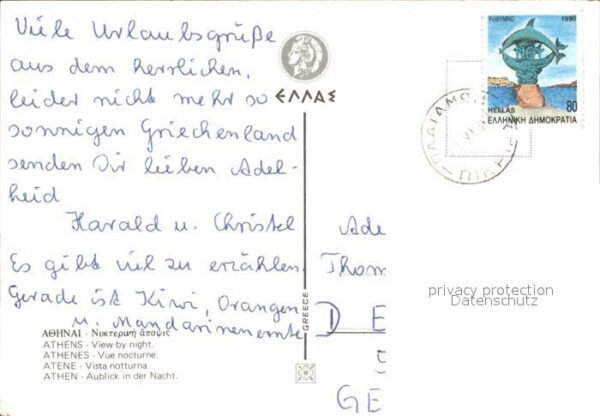 Viele Urlaubsgrüße
aus dem herrlichen,
leider nicht mehr so
sonnigen Griechenland
senden Dir lieben Adel-
heid
Harald u. Christel
Es gibt viel zu erzählen.
Gerade ist Kiwi, Orangen
u. Mandarinenernte
ΑΘΗΝΑΙ - Νυκτερινή ἄποψις
ATHENS - View by night.
ATHENES - Vue nocturne.
ATENE - Vista notturna.
ATHEN - Aublick in der Nacht.
ΕΛΛΑΣ
GREECE
ΡΕΘΥΜΝΟ 1990
HELLAS 80
ΕΛΛΗΝΙΚΗ ΔΗΜΟΚΡΑΤΙΑ
Ade
Thom
D E
GE
privacy protection
Datenschutz